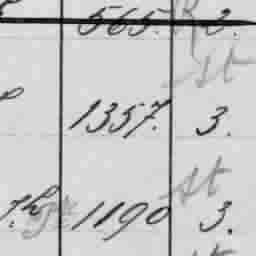 565. R 3.
st
1357. 3.
st
7.h 1190 3.
st